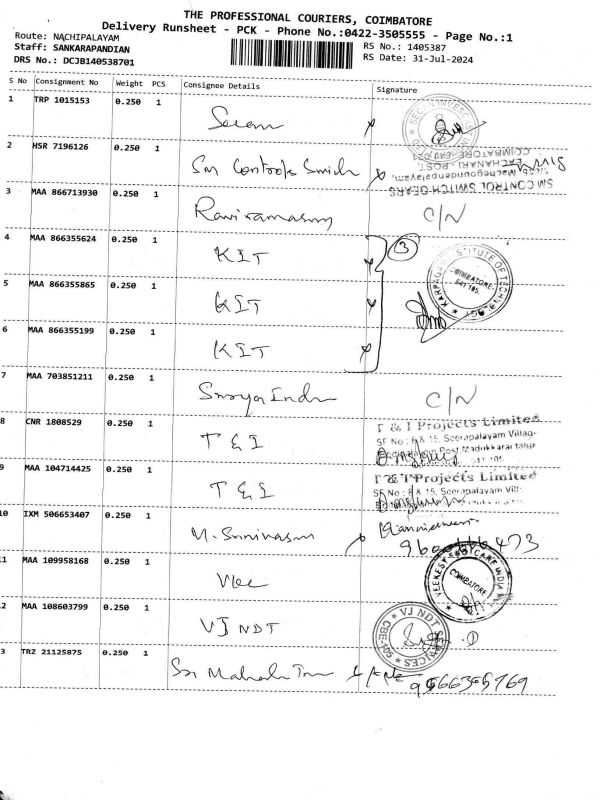 THE PROFESSIONAL COURIERS, COIMBATORE
Delivery Runsheet - PCK - Phone No.:0422-3505555 - Page No.:1
Route: NACHIPALAYAM
RS No.: 1405387
Staff: SANKARAPANDIAN
RS Date: 31-Jul-2024
DRS No.: DCJB140538701
S No Consignment No Weight PCS Consignee Details Signature
1 TRP 1015153 0.250 1
2 HSR 7196126 0.250 1 Sm Controls Switch
SM CONTROL SWITCH GEARS
3 MAA 866713930 0.250 1 Raviramasmy C/N
4 MAA 866355624 0.250 1 KIT 3
COIMBATORE-
641 105.
5 MAA 866355865 0.250 1 KIT
6 MAA 866355199 0.250 1 KIT
7 MAA 703851211 0.250 1 Surya Indu C/N
8 CNR 1808529 0.250 1 T & I
T & I Projects Limited
SF No : 8 & 15, Seerapalayam Villag-
9 MAA 104714425 0.250 1 T & I
T & I Projects Limited
SF No : 8 & 15, Seerapalayam Vill-
10 IXM 506653407 0.250 1 M. Srinivasan
11 MAA 109958168 0.250 1 Vee
VEEKESY COIMBATORE
12 MAA 108603799 0.250 1 VJ NDT
VJ NDT SERVICES
13 TRZ 21125875 0.250 1 Sri Mahalu